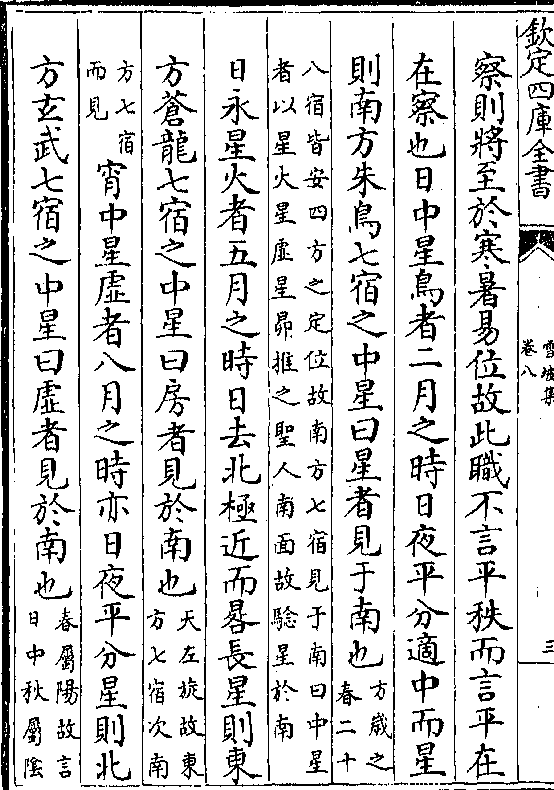 欽定四庫全書
雪坡集
卷八
三
察則將至於寒暑易位故此職不言平秩而言平在
在察也日中星鳥者二月之時日夜平分適中而星
則南方朱鳥七宿之中星曰星者見于南也方歲之
春二十
八宿皆安四方之定位故南方七宿見于南曰中星
者以星火星虛星昴推之聖人南面故驗星於南
日永星火者五月之時日去北極近而晷長星則東
方蒼龍七宿之中星曰房者見於南也天左旋故東
方七宿次南
方七宿
而見宵中星虛者八月之時亦日夜平分星則北
方玄武七宿之中星曰虛者見於南也春屬陽故言
日中秋屬陰